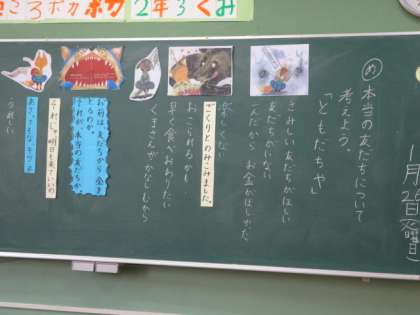 こころポカポカ 2年3くみ
1月26日(火曜日)
め 本当の友だちについて
考えよう。
「ともだちや」
さみしい 友だちがほしい
友だちがいない
お金がほしかった
ごくりとのみこみました。
おこられるかも
早く食べおわりたい
くまさんがかなしむから
お前は、友だちから金を
とるのか。
それが、本当の友だちか。
それじゃ、明日も来ていいの
あさってもな、キツネ
うれしい